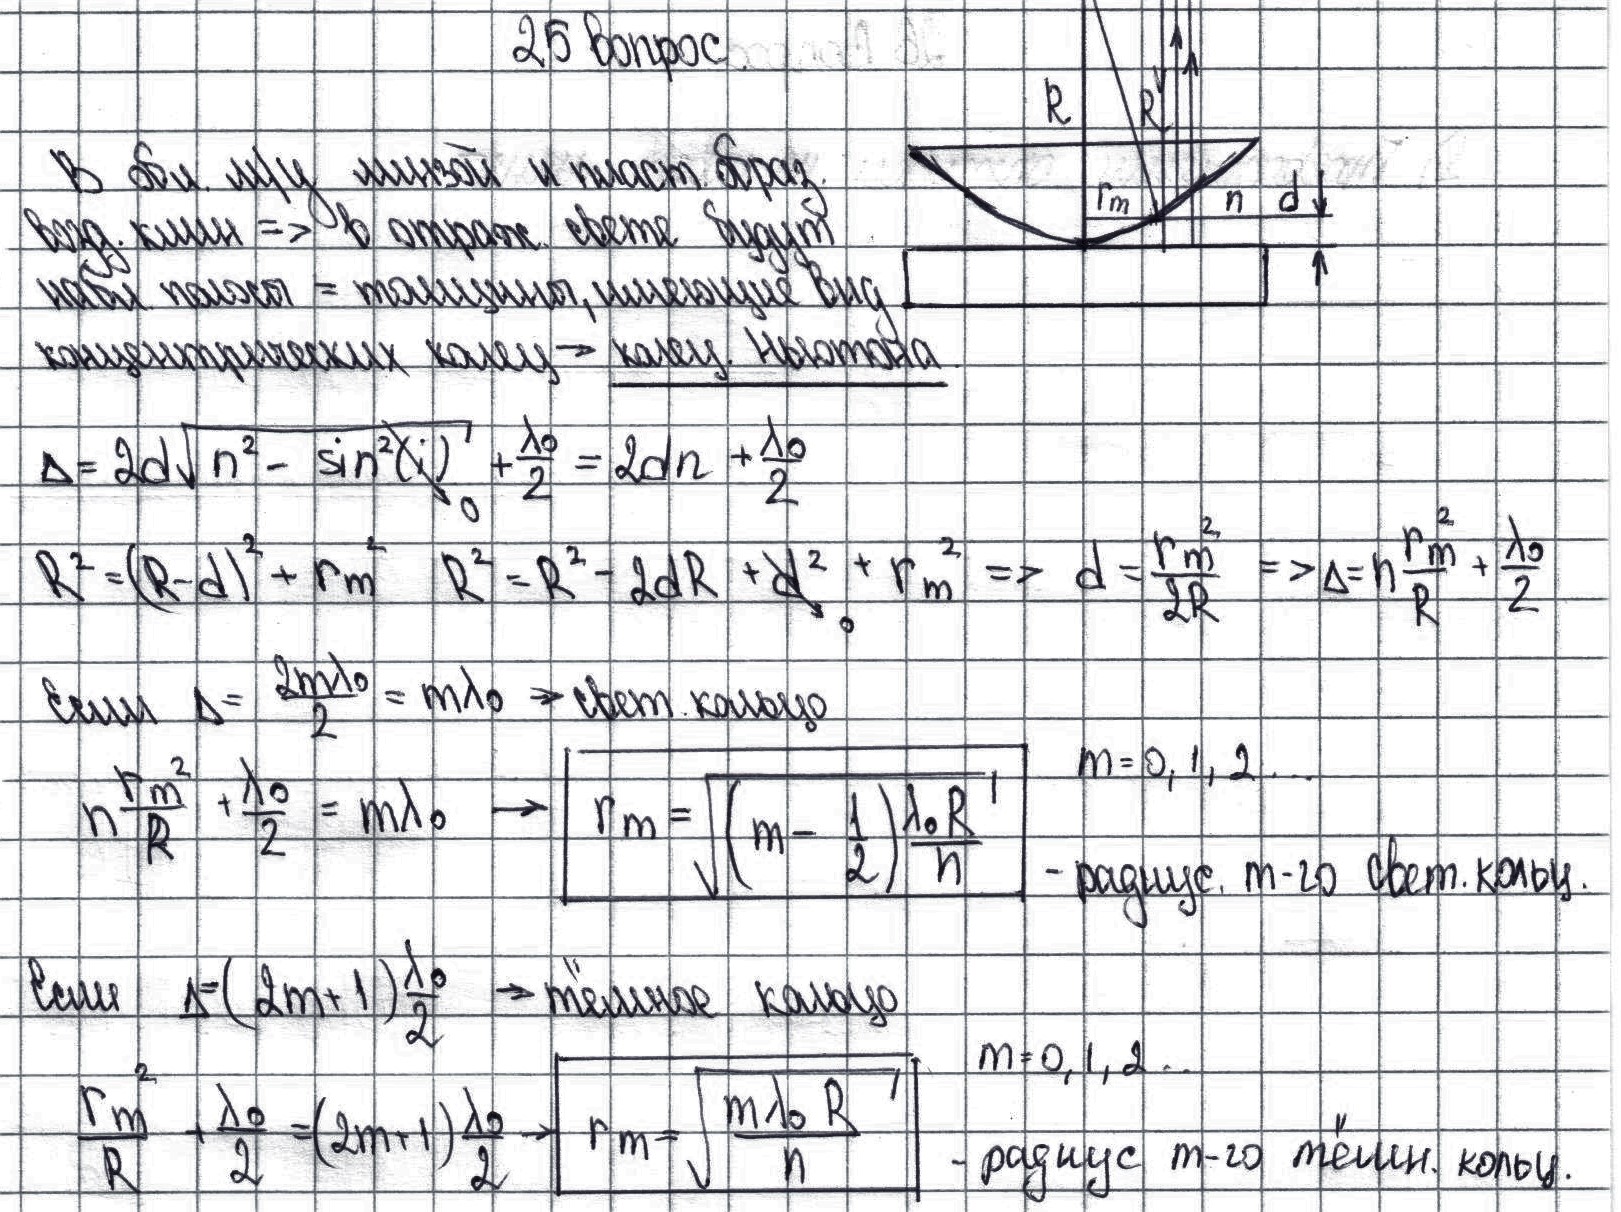 25 вопрос.
R R
rm n d
В обл. м/у линзой и пласт. образ.
возд. клин => в отраж. свете будут
набл полосы = толщины, имеющие вид
концентрических колец → колец. Ньютона.
Δ = 2d√(n² - sin²(i)) + λ₀/2 = 2dn + λ₀/2
0
R² = (R-d)² + rm² R² = R² - 2dR + d² + rm² => d = rm²/2R => Δ = n rm²/R + λ₀/2
0
Если Δ = 2mλ₀/2 = mλ₀ → свет. кольцо
m = 0, 1, 2 ...
n rm²/R + λ₀/2 = mλ₀ → rm = √((m - 1/2) λ₀R/n) - радиус. m-го свет. кольц.
Если Δ = (2m+1) λ₀/2 → тёмное кольцо
m = 0, 1, 2 ...
rm²/R + λ₀/2 = (2m+1) λ₀/2 → rm = √(mλ₀R/n) - радиус m-го тёмн. кольц.